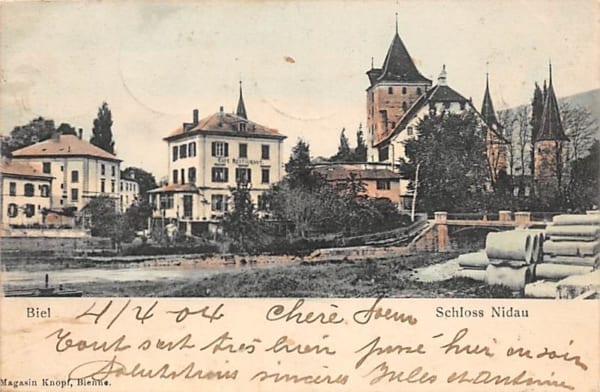 CAFÉ RESTAURANT
Biel
Schloss Nidau
4/4 04 Chère Soeur
Tout s'est très bien passé hier au soir
Salutations sincères Jules et Antoine
Magasin Knopf, Bienne.